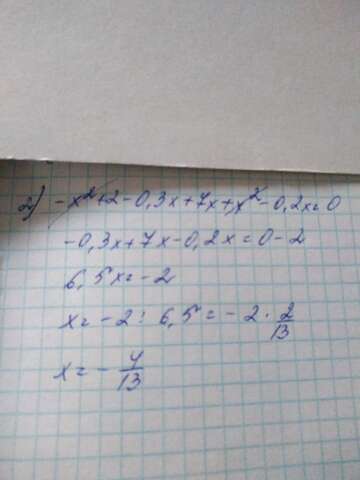 2) -x²+2-0,3x+7x+x²-0,2x=0
-0,3x+7x-0,2x=0-2
6,5x=-2
x=-2:6,5=-2·2/13
x=-4/13